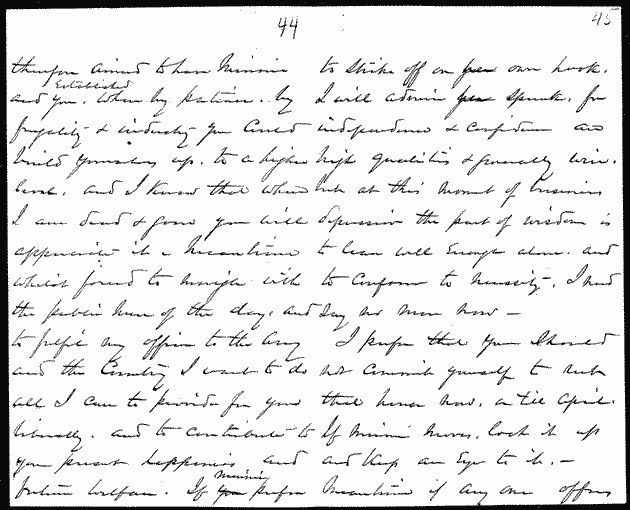 44
therefore aimed to have Minnie
and you, Established where by patience, by
frugality & industry you could
build yourselves up, to a higher
level, and I know that when
I am dead & gone you will
appreciate it. Meantime
whilst forced to mingle with
the public men of the day, and
to prefer my office to the Army
and the Country I want to do
all I can to provide for you
liberally, and to contribute to
your present happiness and
future welfare. If you Minnie prefer
45
to strike off on your own hook,
I will admire your spunk, for
independence & confidence are
high qualities & generally win.
but at this moment of business
depression the part of wisdom is
to leave well enough alone, and
to conform to necessity, I need
say no more now —
I prefer that you should
not commit yourself to rent
that house now, or till April.
If Minnie moves, lock it up
and keep an Eye to it. —
Meantime if any one offers